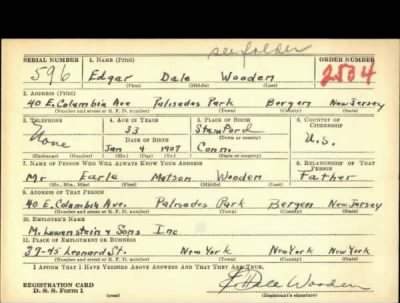 see folder
SERIAL NUMBER 1. NAME (Print) ORDER NUMBER
596 Edgar Dale Wooden 2504
(First) (Middle) (Last)
2. ADDRESS (Print)
40 E. Columbia Ave Palisades Park Bergen New Jersey
(Number and street or R. F. D. number) (Town) (County) (State)
3. TELEPHONE 4. AGE IN YEARS 5. PLACE OF BIRTH 6. COUNTRY OF CITIZENSHIP
None 33 Stamford U.S.
DATE OF BIRTH (Town or county)
Jan 4 1907 Conn.
(Exchange) (Number) (Mo.) (Day) (Yr.) (State or country)
7. NAME OF PERSON WHO WILL ALWAYS KNOW YOUR ADDRESS 8. RELATIONSHIP OF THAT PERSON
Mr Earle Matson Wooden Father
(Mr., Mrs., Miss) (First) (Middle) (Last)
9. ADDRESS OF THAT PERSON
40 E. Columbia Ave. Palisades Park Bergen New Jersey
(Number and street or R. F. D. number) (Town) (County) (State)
10. EMPLOYER'S NAME
M. Lowenstein & Sons Inc
11. PLACE OF EMPLOYMENT OR BUSINESS
37-45 Leonard St. New York New York New York
(Number and street or R. F. D. number) (Town) (County) (State)
I AFFIRM THAT I HAVE VERIFIED ABOVE ANSWERS AND THAT THEY ARE TRUE.
REGISTRATION CARD
D. S. S. Form 1 (over) E. Dale Wooden
(Registrant's signature)